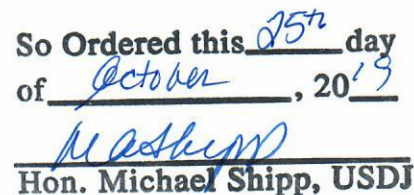 So Ordered this 25th day
of October, 2019
MAShipp
Hon. Michael Shipp, USDJ